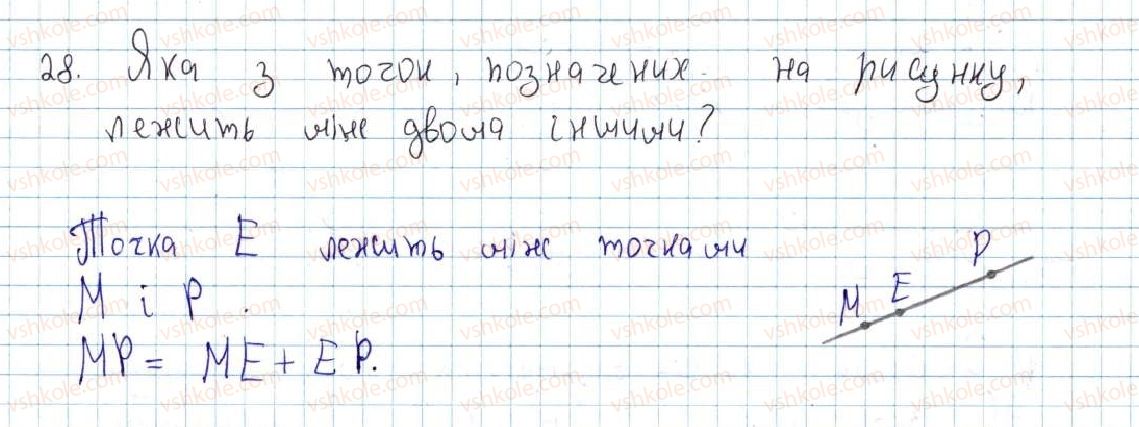 28. Яка з точок, позначених на рисунку,
лежить між двома іншими?
Точка E лежить між точками
M і P.
MP = ME + EP.
M E P